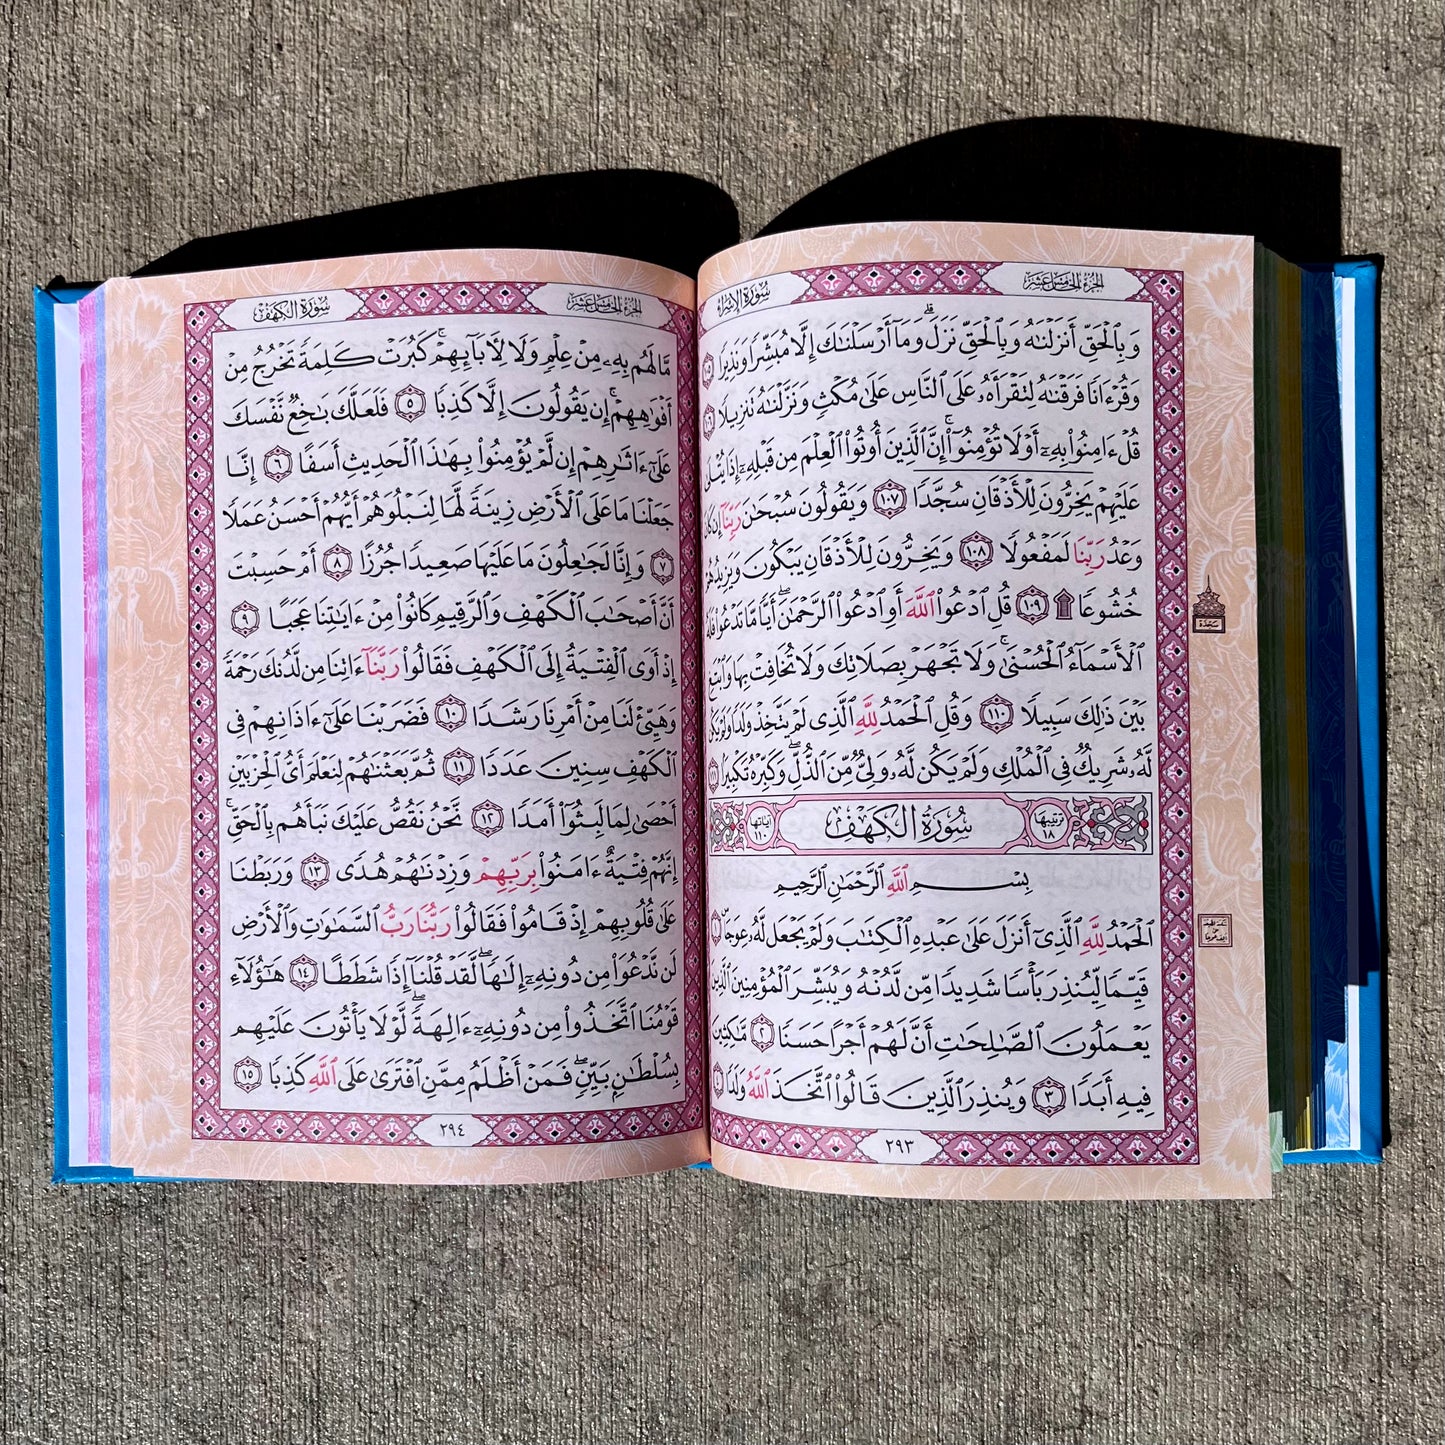 سُورَةُ الإِسْرَاء
الجُزْءُ الخَامِسَ عَشَرَ
وَبِٱلْحَقِّ أَنزَلْنَٰهُ وَبِٱلْحَقِّ نَزَلَ ۗ وَمَآ أَرْسَلْنَٰكَ إِلَّا مُبَشِّرًا وَنَذِيرًا ١٠٥
وَقُرْءَانًا فَرَقْنَٰهُ لِتَقْرَأَهُۥ عَلَى ٱلنَّاسِ عَلَىٰ مُكْثٍ وَنَزَّلْنَٰهُ تَنزِيلًا ١٠٦
قُلْ ءَامِنُوا۟ بِهِۦٓ أَوْ لَا تُؤْمِنُوٓا۟ ۚ إِنَّ ٱلَّذِينَ أُوتُوا۟ ٱلْعِلْمَ مِن قَبْلِهِۦٓ إِذَا يُتْلَىٰ
عَلَيْهِمْ يَخِرُّونَ لِلْأَذْقَانِ سُجَّدًا ١٠٧ وَيَقُولُونَ سُبْحَٰنَ رَبِّنَآ إِن كَانَ
وَعْدُ رَبِّنَا لَمَفْعُولًا ١٠٨ وَيَخِرُّونَ لِلْأَذْقَانِ يَبْكُونَ وَيَزِيدُهُمْ
خُشُوعًا ۩ ١٠٩ قُلِ ٱدْعُوا۟ ٱللَّهَ أَوِ ٱدْعُوا۟ ٱلرَّحْمَٰنَ ۖ أَيًّا مَّا تَدْعُوا۟ فَلَهُ
سَجْدَة
ٱلْأَسْمَآءُ ٱلْحُسْنَىٰ ۚ وَلَا تَجْهَرْ بِصَلَاتِكَ وَلَا تُخَافِتْ بِهَا وَٱبْتَغِ
بَيْنَ ذَٰلِكَ سَبِيلًا ١١٠ وَقُلِ ٱلْحَمْدُ لِلَّهِ ٱلَّذِى لَمْ يَتَّخِذْ وَلَدًا وَلَمْ يَكُن
لَّهُۥ شَرِيكٌ فِى ٱلْمُلْكِ وَلَمْ يَكُن لَّهُۥ وَلِىٌّ مِّنَ ٱلذُّلِّ ۖ وَكَبِّرْهُ تَكْبِيرًۢا ١١١
ترتيبها ١٨
سُورَةُ الكَهْفِ
آياتها
بِسْمِ ٱللَّهِ ٱلرَّحْمَٰنِ ٱلرَّحِيمِ
ٱلْحَمْدُ لِلَّهِ ٱلَّذِىٓ أَنزَلَ عَلَىٰ عَبْدِهِ ٱلْكِتَٰبَ وَلَمْ يَجْعَل لَّهُۥ عِوَجَا ۜ ١
قَيِّمًا لِّيُنذِرَ بَأْسًا شَدِيدًا مِّن لَّدُنْهُ وَيُبَشِّرَ ٱلْمُؤْمِنِينَ ٱلَّذِينَ
يَعْمَلُونَ ٱلصَّٰلِحَٰتِ أَنَّ لَهُمْ أَجْرًا حَسَنًا ٢ مَّٰكِثِينَ
فِيهِ أَبَدًا ٣ وَيُنذِرَ ٱلَّذِينَ قَالُوا۟ ٱتَّخَذَ ٱللَّهُ وَلَدًا ٤
٢٩٣
سُورَةُ الكَهْفِ
الجُزْءُ الخَامِسَ عَشَرَ
مَّا لَهُم بِهِۦ مِنْ عِلْمٍ وَلَا لِـَٔابَآئِهِمْ ۚ كَبُرَتْ كَلِمَةً تَخْرُجُ مِنْ
أَفْوَٰهِهِمْ ۚ إِن يَقُولُونَ إِلَّا كَذِبًا ٥ فَلَعَلَّكَ بَٰخِعٌ نَّفْسَكَ
عَلَىٰٓ ءَاثَٰرِهِمْ إِن لَّمْ يُؤْمِنُوا۟ بِهَٰذَا ٱلْحَدِيثِ أَسَفًا ٦ إِنَّا
جَعَلْنَا مَا عَلَى ٱلْأَرْضِ زِينَةً لَّهَا لِنَبْلُوَهُمْ أَيُّهُمْ أَحْسَنُ عَمَلًا
٧ وَإِنَّا لَجَٰعِلُونَ مَا عَلَيْهَا صَعِيدًا جُرُزًا ٨ أَمْ حَسِبْتَ
أَنَّ أَصْحَٰبَ ٱلْكَهْفِ وَٱلرَّقِيمِ كَانُوا۟ مِنْ ءَايَٰتِنَا عَجَبًا ٩
إِذْ أَوَى ٱلْفِتْيَةُ إِلَى ٱلْكَهْفِ فَقَالُوا۟ رَبَّنَآ ءَاتِنَا مِن لَّدُنكَ رَحْمَةً
وَهَيِّئْ لَنَا مِنْ أَمْرِنَا رَشَدًا ١٠ فَضَرَبْنَا عَلَىٰٓ ءَاذَانِهِمْ فِى
ٱلْكَهْفِ سِنِينَ عَدَدًا ١١ ثُمَّ بَعَثْنَٰهُمْ لِنَعْلَمَ أَىُّ ٱلْحِزْبَيْنِ
أَحْصَىٰ لِمَا لَبِثُوٓا۟ أَمَدًا ١٢ نَّحْنُ نَقُصُّ عَلَيْكَ نَبَأَهُم بِٱلْحَقِّ ۚ
إِنَّهُمْ فِتْيَةٌ ءَامَنُوا۟ بِرَبِّهِمْ وَزِدْنَٰهُمْ هُدًى ١٣ وَرَبَطْنَا
عَلَىٰ قُلُوبِهِمْ إِذْ قَامُوا۟ فَقَالُوا۟ رَبُّنَا رَبُّ ٱلسَّمَٰوَٰتِ وَٱلْأَرْضِ
لَن نَّدْعُوَا۟ مِن دُونِهِۦٓ إِلَٰهًا ۖ لَّقَدْ قُلْنَآ إِذًا شَطَطًا ١٤ هَٰٓؤُلَآءِ
قَوْمُنَا ٱتَّخَذُوا۟ مِن دُونِهِۦٓ ءَالِهَةً ۖ لَّوْلَا يَأْتُونَ عَلَيْهِم
بِسُلْطَٰنٍۭ بَيِّنٍ ۖ فَمَنْ أَظْلَمُ مِمَّنِ ٱفْتَرَىٰ عَلَى ٱللَّهِ كَذِبًا ١٥
٢٩٤